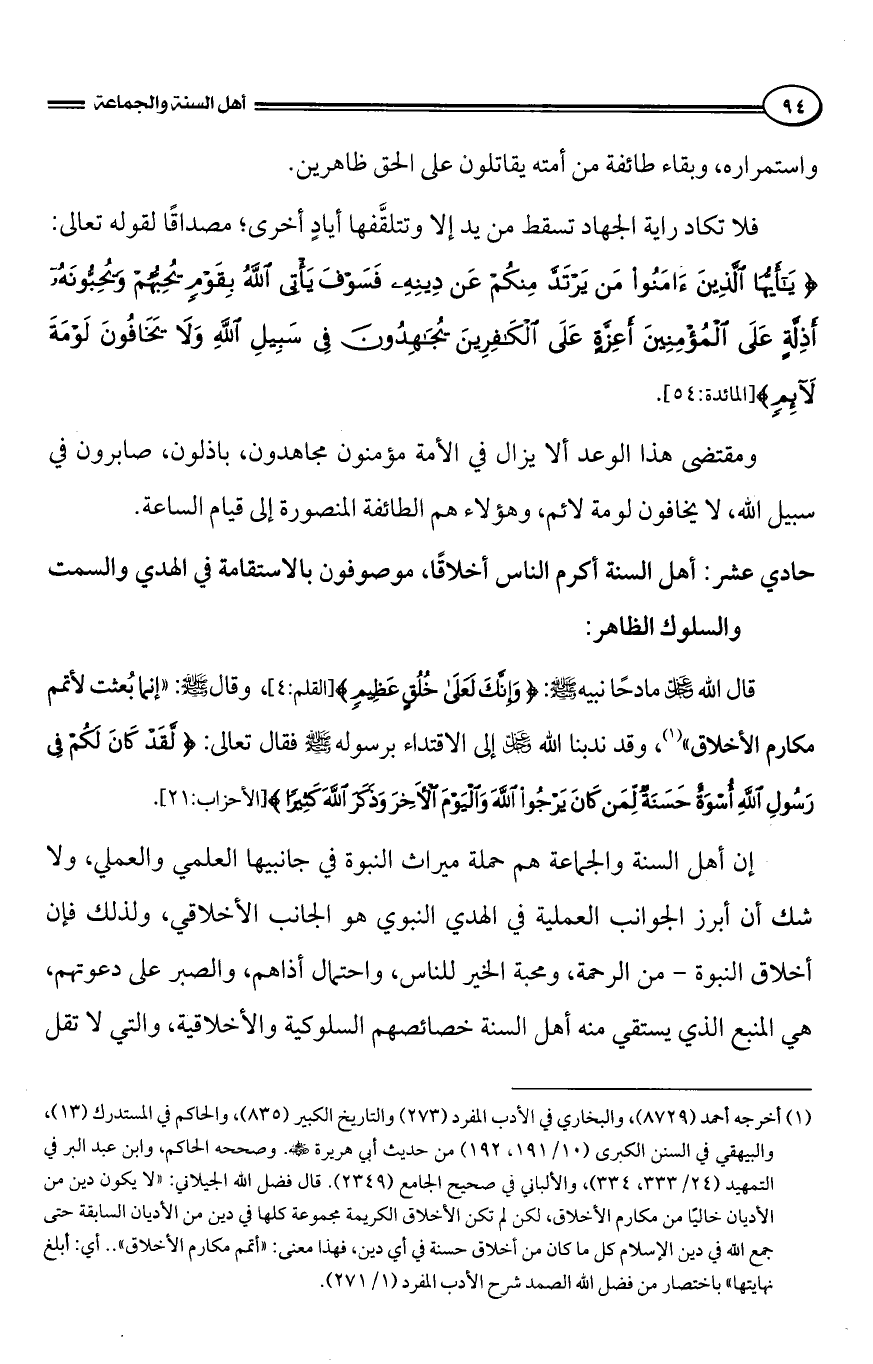 ٩٤ أهل السنة والجماعة
واستمراره، وبقاء طائفة من أمته يقاتلون على الحق ظاهرين.
فلا تكاد راية الجهاد تسقط من يد إلا وتتلقَّفها أيادٍ أخرى؛ مصداقًا لقوله تعالى:
﴿ يَٰٓأَيُّهَا ٱلَّذِينَ ءَامَنُواْ مَن يَرْتَدَّ مِنكُمْ عَن دِينِهِۦ فَسَوْفَ يَأْتِى ٱللَّهُ بِقَوْمٍ يُحِبُّهُمْ وَيُحِبُّونَهُۥٓ
أَذِلَّةٍ عَلَى ٱلْمُؤْمِنِينَ أَعِزَّةٍ عَلَى ٱلْكَٰفِرِينَ يُجَٰهِدُونَ فِى سَبِيلِ ٱللَّهِ وَلَا يَخَافُونَ لَوْمَةَ
لَآئِمٍ ﴾[المائدة:٥٤].
ومقتضى هذا الوعد ألا يزال في الأمة مؤمنون مجاهدون، باذلون، صابرون في
سبيل الله، لا يخافون لومة لائم، وهؤلاء هم الطائفة المنصورة إلى قيام الساعة.
حادي عشر: أهل السنة أكرم الناس أخلاقًا، موصوفون بالاستقامة في الهدي والسمت
والسلوك الظاهر:
قال الله ﷻ مادحًا نبيه ﷺ: ﴿ وَإِنَّكَ لَعَلَىٰ خُلُقٍ عَظِيمٍ ﴾[القلم:٤]، وقال ﷺ: «إنما بُعثت لأتمم
مكارم الأخلاق»(١)، وقد ندبنا الله ﷻ إلى الاقتداء برسوله ﷺ فقال تعالى: ﴿ لَّقَدْ كَانَ لَكُمْ فِى
رَسُولِ ٱللَّهِ أُسْوَةٌ حَسَنَةٌ لِّمَن كَانَ يَرْجُواْ ٱللَّهَ وَٱلْيَوْمَ ٱلْأَخِرَ وَذَكَرَ ٱللَّهَ كَثِيرًا ﴾[الأحزاب:٢١].
إن أهل السنة والجماعة هم حملة ميراث النبوة في جانبيها العلمي والعملي، ولا
شك أن أبرز الجوانب العملية في الهدي النبوي هو الجانب الأخلاقي، ولذلك فإن
أخلاق النبوة – من الرحمة، ومحبة الخير للناس، واحتمال أذاهم، والصبر على دعوتهم،
هي المنبع الذي يستقي منه أهل السنة خصائصهم السلوكية والأخلاقية، والتي لا تقل
(١) أخرجه أحمد (٨٧٢٩)، والبخاري في الأدب المفرد (٢٧٣) والتاريخ الكبير (٨٣٥)، والحاكم في المستدرك (١٣)،
والبيهقي في السنن الكبرى (١٠/ ١٩١، ١٩٢) من حديث أبي هريرة ﵁. وصححه الحاكم، وابن عبد البر في
التمهيد (٢٤/ ٣٣٣، ٣٣٤)، والألباني في صحيح الجامع (٢٣٤٩). قال فضل الله الجيلاني: «لا يكون دين من
الأديان خاليًا من مكارم الأخلاق، لكن لم تكن الأخلاق الكريمة مجموعة كلها في دين من الأديان السابقة حتى
جمع الله في دين الإسلام كل ما كان من أخلاق حسنة في أي دين، فهذا معنى: «أتمم مكارم الأخلاق».. أي: أبلغ
نهايتها» باختصار من فضل الله الصمد شرح الأدب المفرد (١/ ٢٧١).